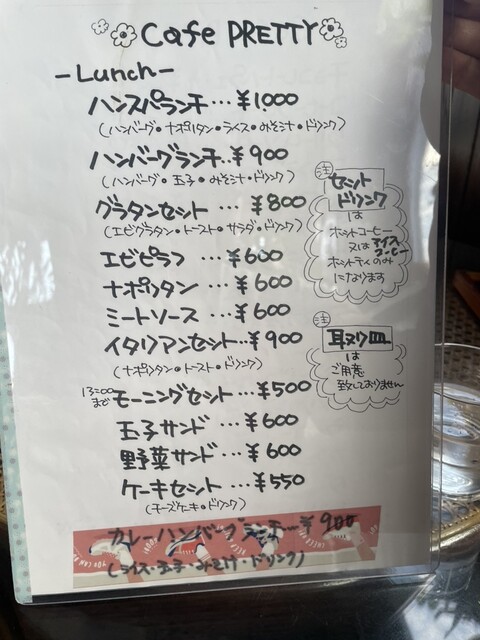 Cafe PRETTY
-Lunch-
ハンスパランチ…¥1.000
(ハンバーグ・ナポリタン・ライス・みそ汁・ドリンク)
ハンバーグランチ..¥900
(ハンバーグ・玉子・みそ汁・ドリンク)
グラタンセット…¥800
(エビグラタン・トースト・サラダ・ドリンク)
エビピラフ…¥600
ナポリタン…¥600
ミートソース…¥600
イタリアンセット…¥900
(ナポリタン・トースト・ドリンク)
13:00まで モーニングセット…¥500
玉子サンド…¥600
野菜サンド…¥600
ケーキセット…¥550
(チーズケーキ・ドリンク)
カレーハンバーグランチ…¥900
(ライス・玉子・みそ汁・ドリンク)
注
セット
ドリンク
は
ホットコーヒー
又はアイスコーヒー
ホットティのみ
になります
注
取り皿
は
ご用意
致しておりません